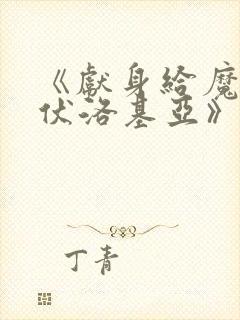 《獻身給魔
伏洛基亞》
丁青